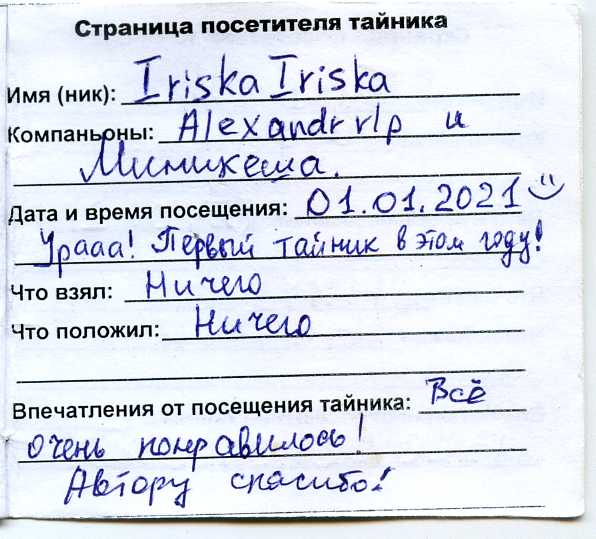 Страница посетителя тайника
Имя (ник): Iriska Iriska
Компаньоны: Alexandr vlp и
Миникеша.
Дата и время посещения: 01.01.2021
Урааа! Первый тайник в этом году!
Что взял: Ничего
Что положил: Ничего
Впечатления от посещения тайника: Всё
очень понравилось!
Автору спасибо!